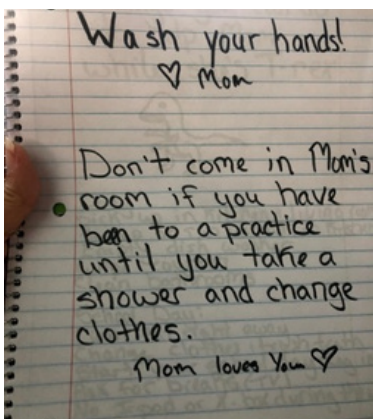 Wash your hands!
♡ Mom
Don't come in Mom's
room if you have
been to a practice
until you take a
shower and change
clothes.
Mom loves You ♡